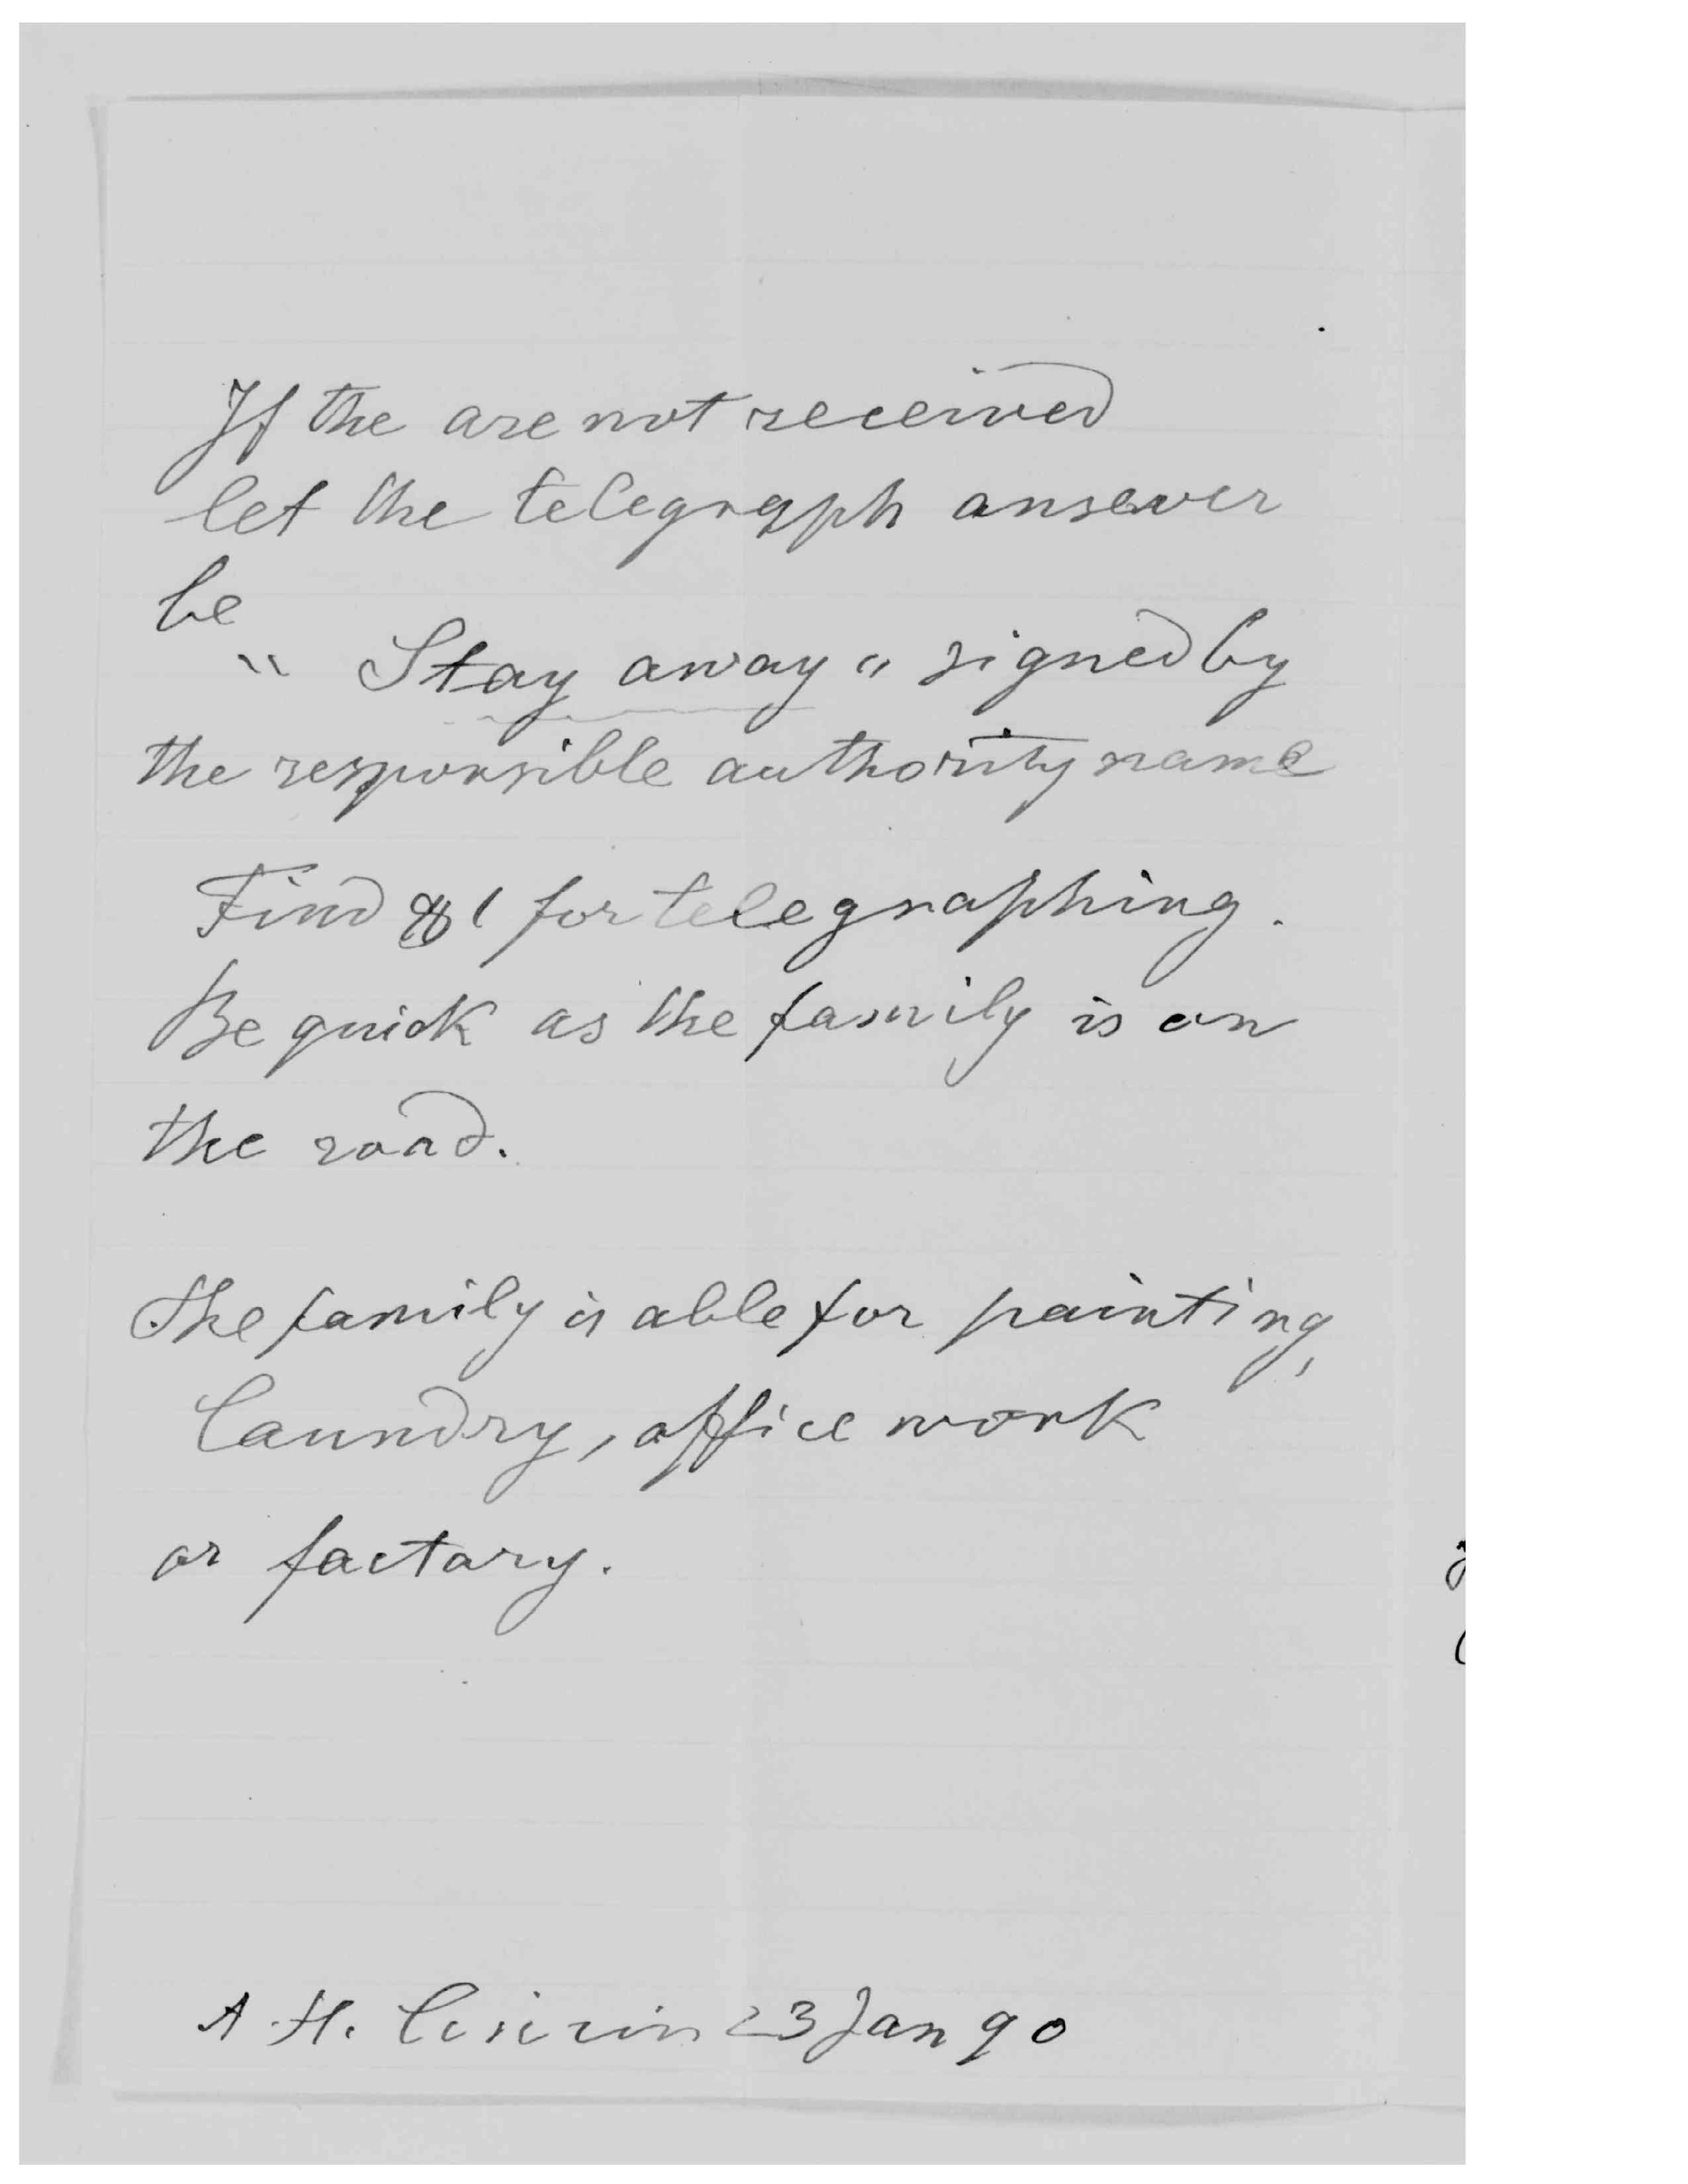 If the are not received
let the telegraph answer
be
" Stay away " signed by
the responsible authority name
Find $1 for telegraphing.
Be quick as the family is on
the road.
The family is able for painting,
laundry, office work
or factory.
A. H. 23 Jan 90